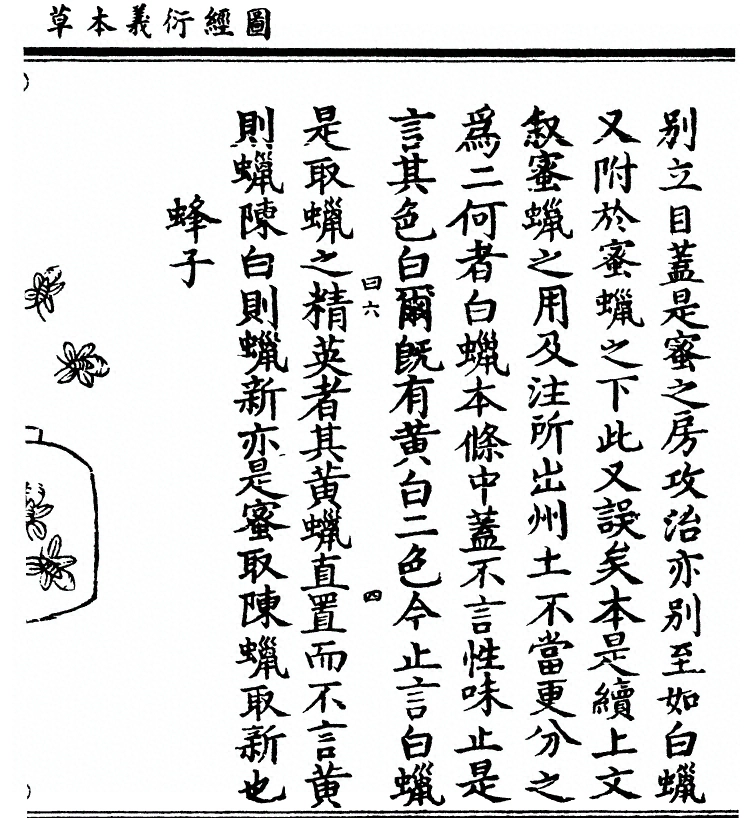 圖經衍義本草
別立目蓋是蜜之房攻治亦別至如白蠟
又附於蜜蠟之下此又誤矣本是續上文
叙蜜蠟之用及注所出州土不當更分之
爲二何者白蠟本條中蓋不言性味止是
言其色白爾既有黄白二色今止言白蠟
曰六
四
是取蠟之精英者其黄蠟直置而不言黄
則蠟陳白則蠟新亦是蜜取陳蠟取新也
蜂子